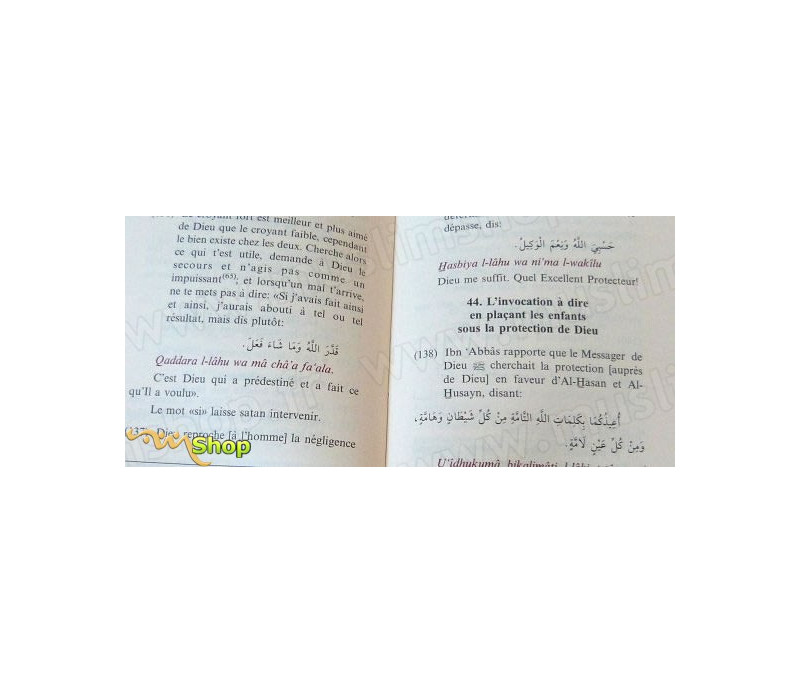 croyant fort est meilleur et plus aimé
de Dieu que le croyant faible, cependant
le bien existe chez les deux. Cherche alors
ce qui t'est utile, demande à Dieu le
secours et n'agis pas comme un
impuissant(65); et lorsqu'un mal t'arrive,
ne te mets pas à dire: «Si j'avais fait ainsi
et ainsi, j'aurais abouti à tel ou tel
résultat, mais dis plutôt:
قَدَّرَ اللَّهُ وَمَا شَاءَ فَعَلَ.
Qaddara l-lâhu wa mâ châ'a fa'ala.
C'est Dieu qui a prédestiné et a fait ce
qu'Il a voulu».
Le mot «si» laisse satan intervenir.
(137) Dieu reproche [à l'homme] la négligence
Shop
dépasse, dis:
حَسْبِيَ اللَّهُ وَنِعْمَ الْوَكِيلُ.
Hasbiya l-lâhu wa ni'ma l-wakîlu
Dieu me suffit. Quel Excellent Protecteur!
44. L'invocation à dire
en plaçant les enfants
sous la protection de Dieu
(138) Ibn 'Abbâs rapporte que le Messager de
Dieu ﷺ cherchait la protection [auprès
de Dieu] en faveur d'Al-Hasan et Al-
Husayn, disant:
أُعِيذُكُمَا بِكَلِمَاتِ اللَّهِ التَّامَّةِ مِنْ كُلِّ شَيْطَانٍ وَهَامَّةٍ،
وَمِنْ كُلِّ عَيْنٍ لَامَّةٍ.
U'îdhukumâ bikalimâti l-lâhi